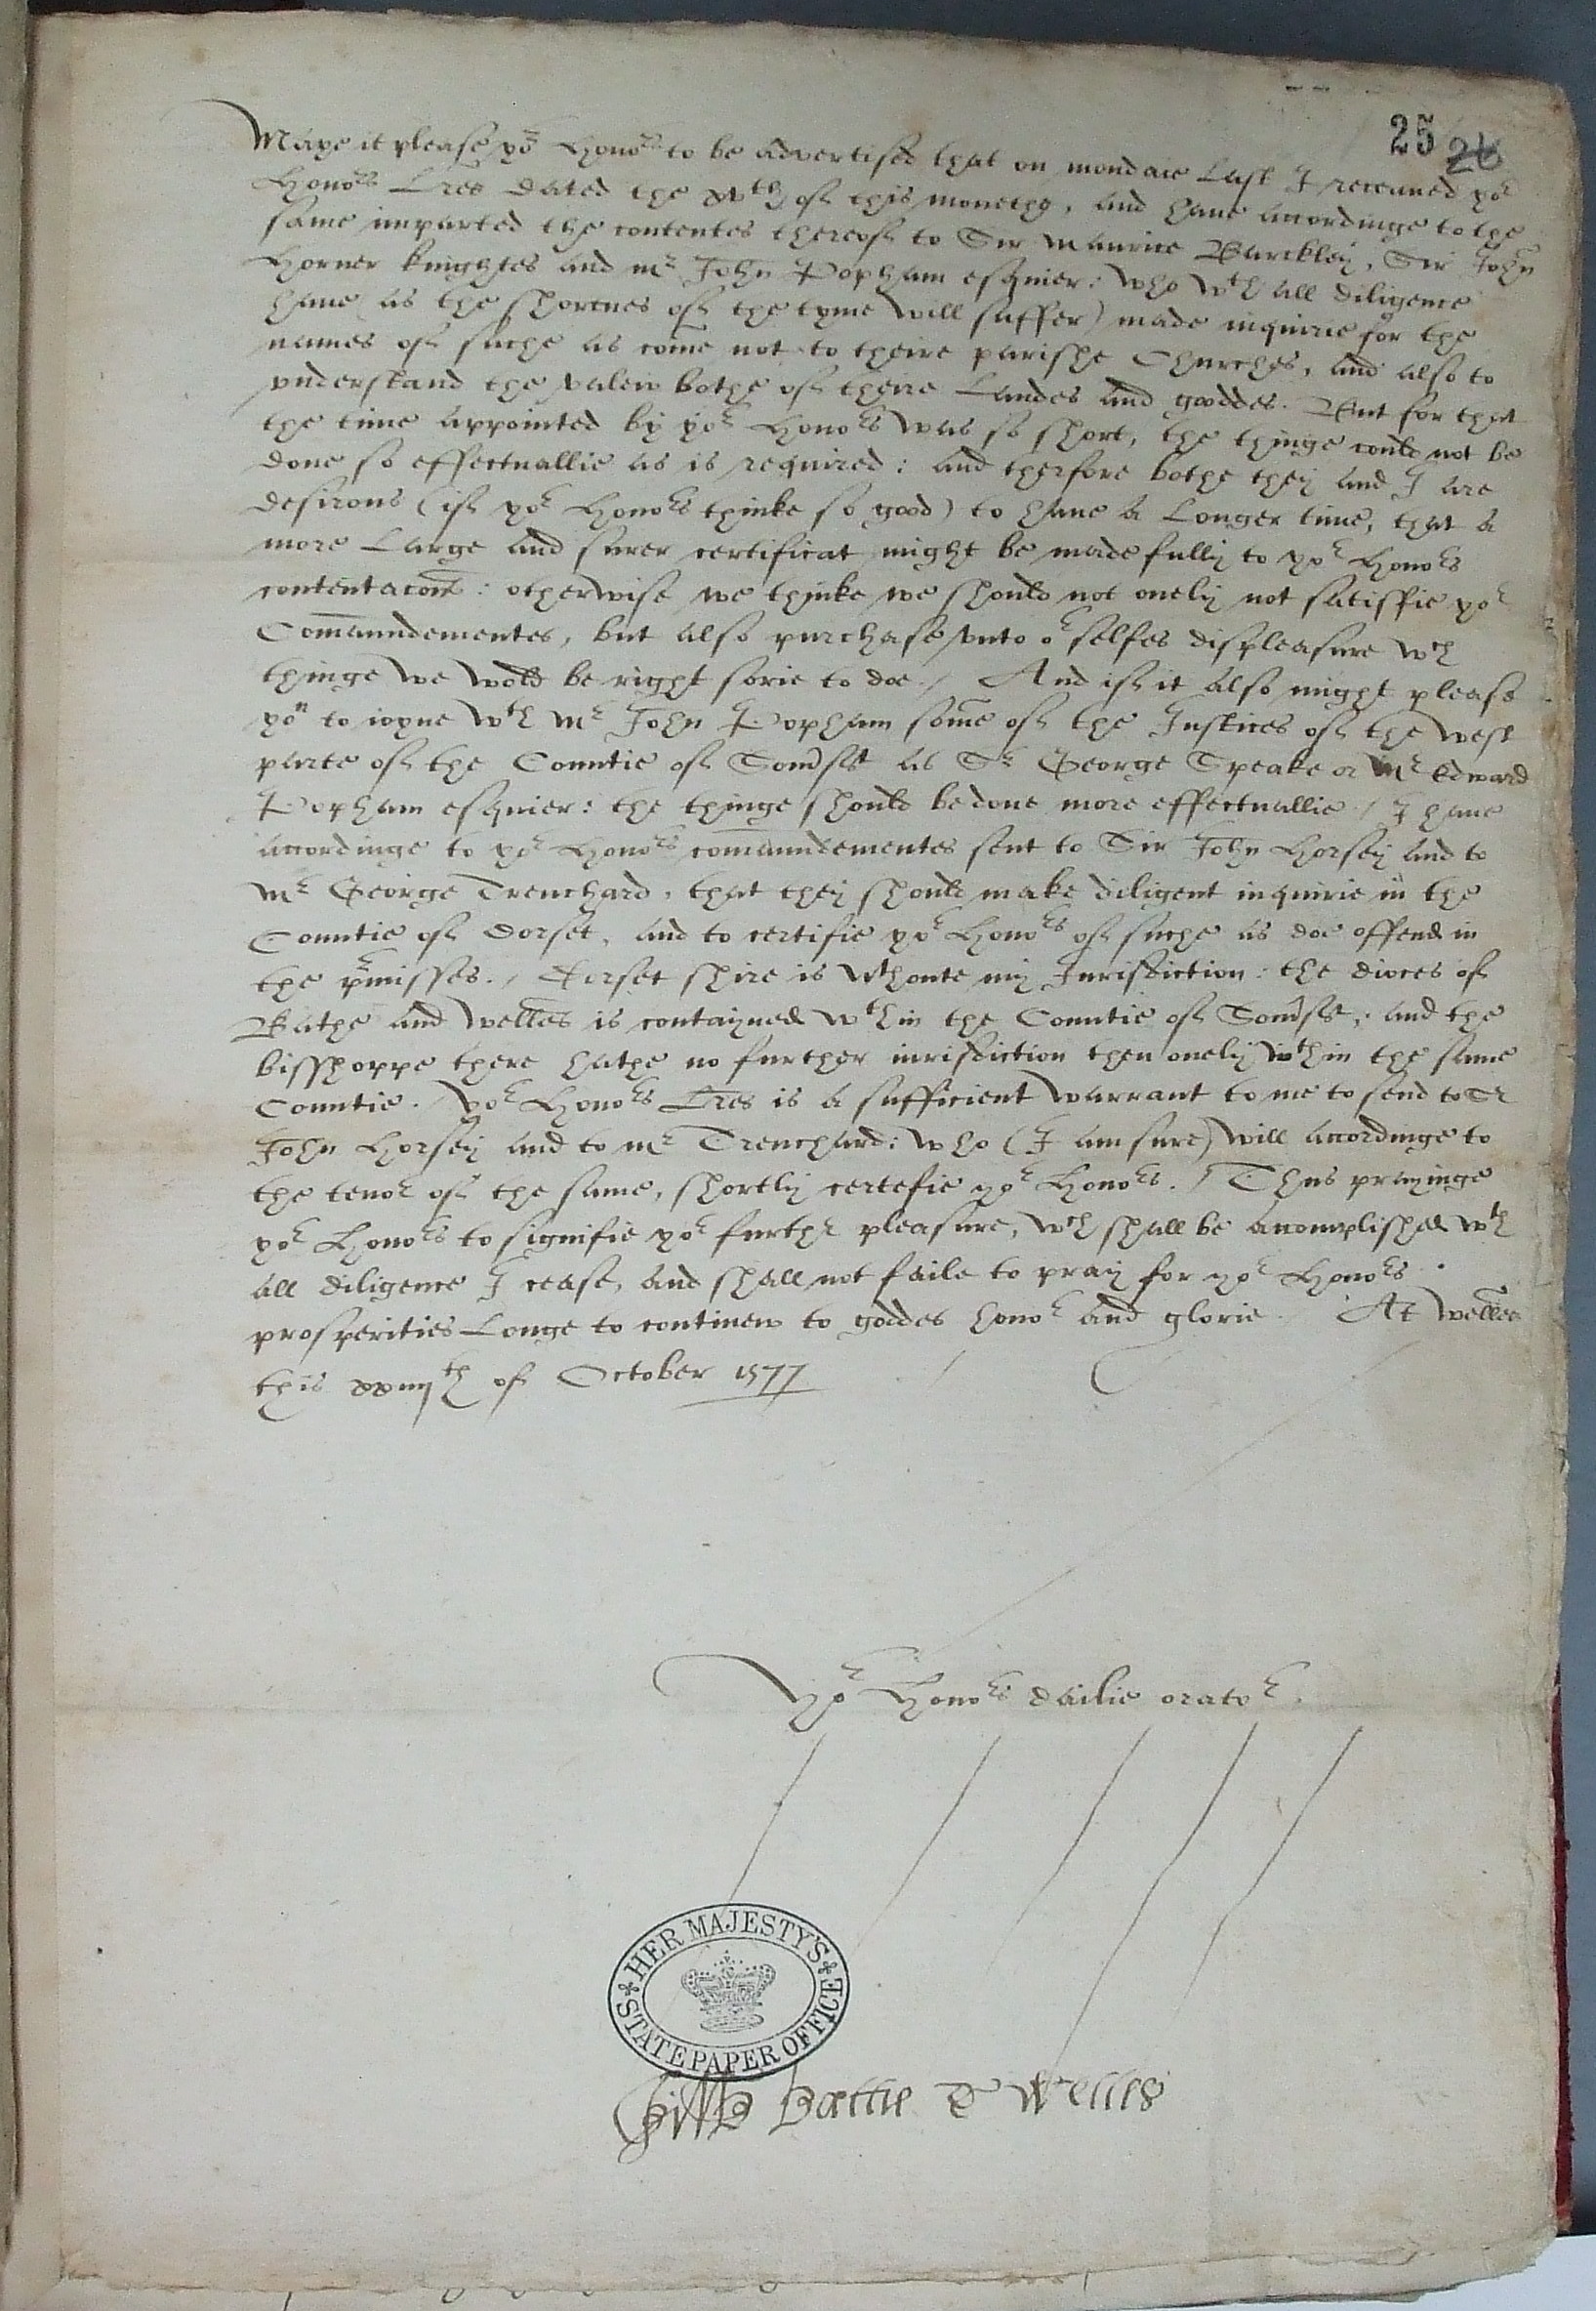 25 26
Maye it please yor Honors to be advertised that on mondaie last I receaved yor
Honors Lres dated the xvth of this monethe, and have accordinge to the
same imparted the contentes thereof to Sir Maurice Barckley, Sir John
Horner knightes and Mr John Popham esquier: who wth all diligence
have (as the shortnes of the tyme will suffer) made inquirie for the
names of suche as come not to theire parishe Churches, and also to
understand the valew bothe of theire Landes and gooddes. But for that
the time appointed by yor Honors was so short, the thinge could not be
done so effectuallie as is required: and therfore bothe they and I are
desirous (if yor Honors thinke so good) to have a Longer time, that a
more Large and surer certificat might be made fully to yor Honors
contentacon: otherwise we thinke we should not onely not satisfie yor
Comaundementes, but also purchase unto or selfes displeasure wch
thinge we wold be right sorie to doe./ And if it also might please
you to ioyne wth Mr John Popham some of the Justices of the west
parte of the Countie of Somst as Sr George Speake or Mr Edward
Popham esquier: the thinge should be done more effectuallie / I have
accordinge to yor Honors comaundementes sent to Sir John Horsey and to
Mr George Trenchard, that they should make diligent inquirie in the
Countie of Dorset, and to certifie yor Honors of suche as doe offend in
the pmisses./ Dorset shire is wthoute my Jurisdiction: the dioces of
Bathe and Welles is contayned wthin the Countie of Somst, and the
bisshoppe there hathe no further iurisdiction then onely wthin the same
Countie. Yor Honors Lres is a sufficient warrant to me to send to Sr
John Horsey and to Mr Trenchard: who (I am sure) will accordinge to
the tenor of the same, shortly certefie yor Honors./ Thus prayinge
yor Honors to signifie yor furthr pleasure, wch shall be acomplished wth
all diligence I cease, and shall not faile to pray for yor Honors
prosperities Longe to continew to goddes honor and glorie./ At Welles
this xxiiijth of October 1577
Yor Honors dailie orator.
HER MAJESTY'S
STATE PAPER OFFICE
Bathe & Welles